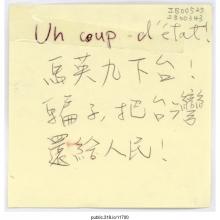 JB00523
2300343
Uh coup d'état!
馬英九下台!
騙子,把台灣
還給人民!
public.318.io/11789